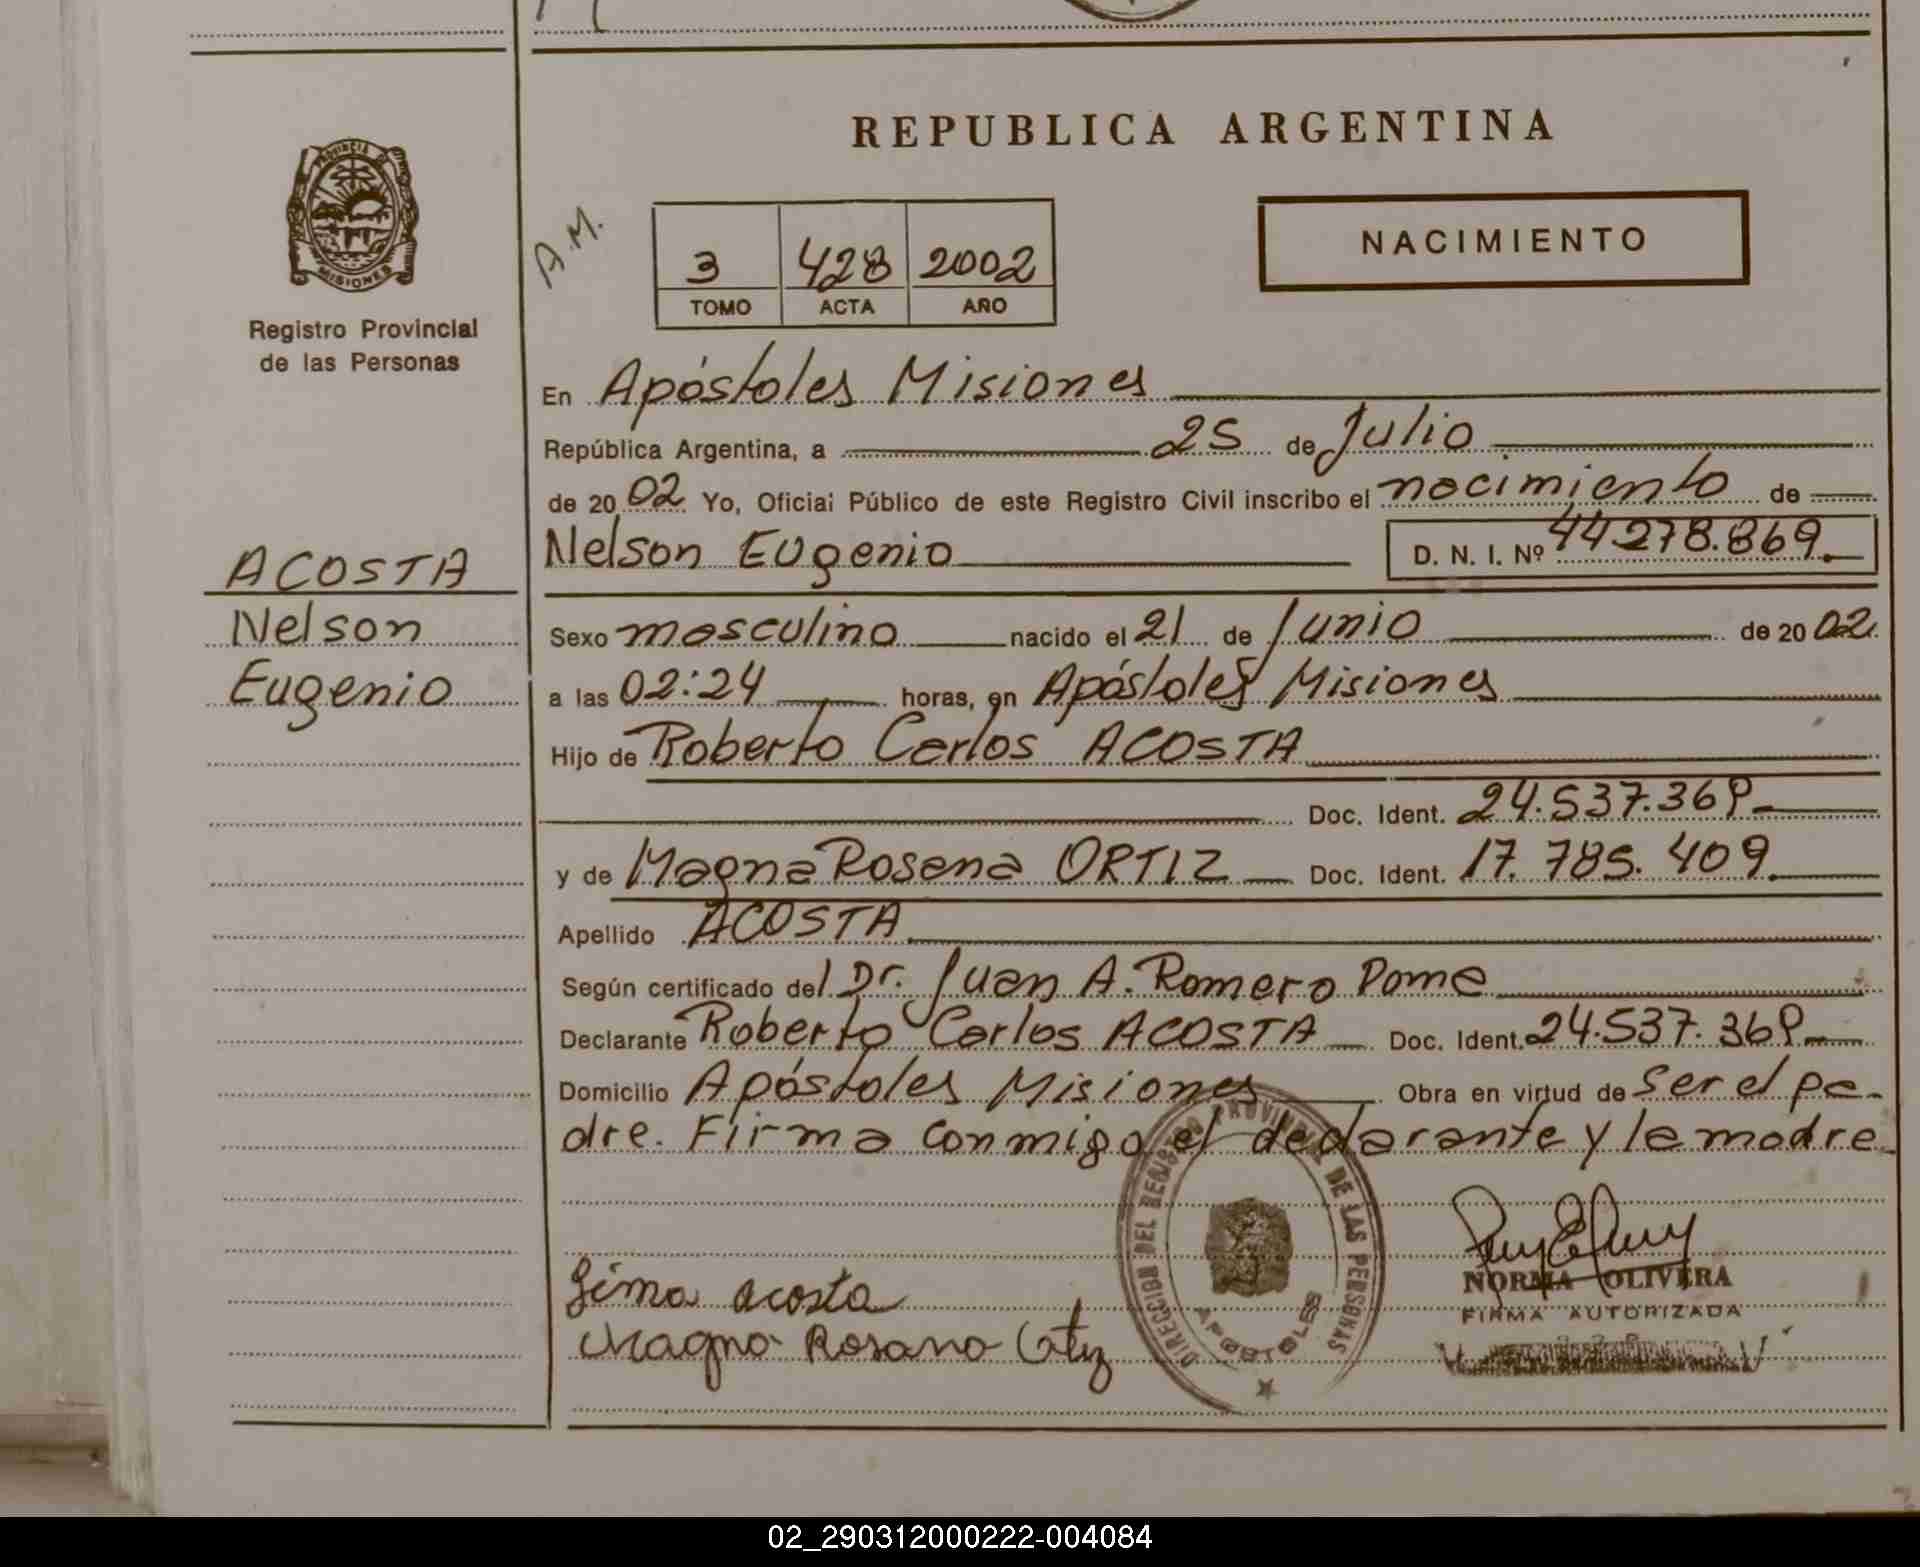 REPUBLICA ARGENTINA
PROVINCIA DE MISIONES
Registro Provincial
de las Personas
A.M.
3 428 2002
TOMO ACTA AÑO
NACIMIENTO
En Apóstoles Misiones
República Argentina, a 25 de Julio
de 2002 Yo, Oficial Público de este Registro Civil inscribo el nacimiento de
Nelson Eugenio D. N. I. Nº 44.278.869.
ACOSTA
Nelson
Eugenio
Sexo masculino nacido el 21 de Junio de 2002.
a las 02:24 horas, en Apóstoles Misiones
Hijo de Roberto Carlos ACOSTA
Doc. Ident. 24.537.369
y de Magna Rosana ORTIZ Doc. Ident. 17.785.409.
Apellido ACOSTA
Según certificado del Dr. Juan A. Romero Dome
Declarante Roberto Carlos ACOSTA Doc. Ident. 24.537.369
Domicilio Apóstoles Misiones Obra en virtud de Ser el pa-
dre. Firma conmigo el declarante y la madre
DIRECCION DEL REGISTRO PROVINCIAL DE LAS PERSONAS
APOSTOLES
acosta
Magna Rosana Ortiz
NORMA OLIVERA
FIRMA AUTORIZADA
02_290312000222-004084